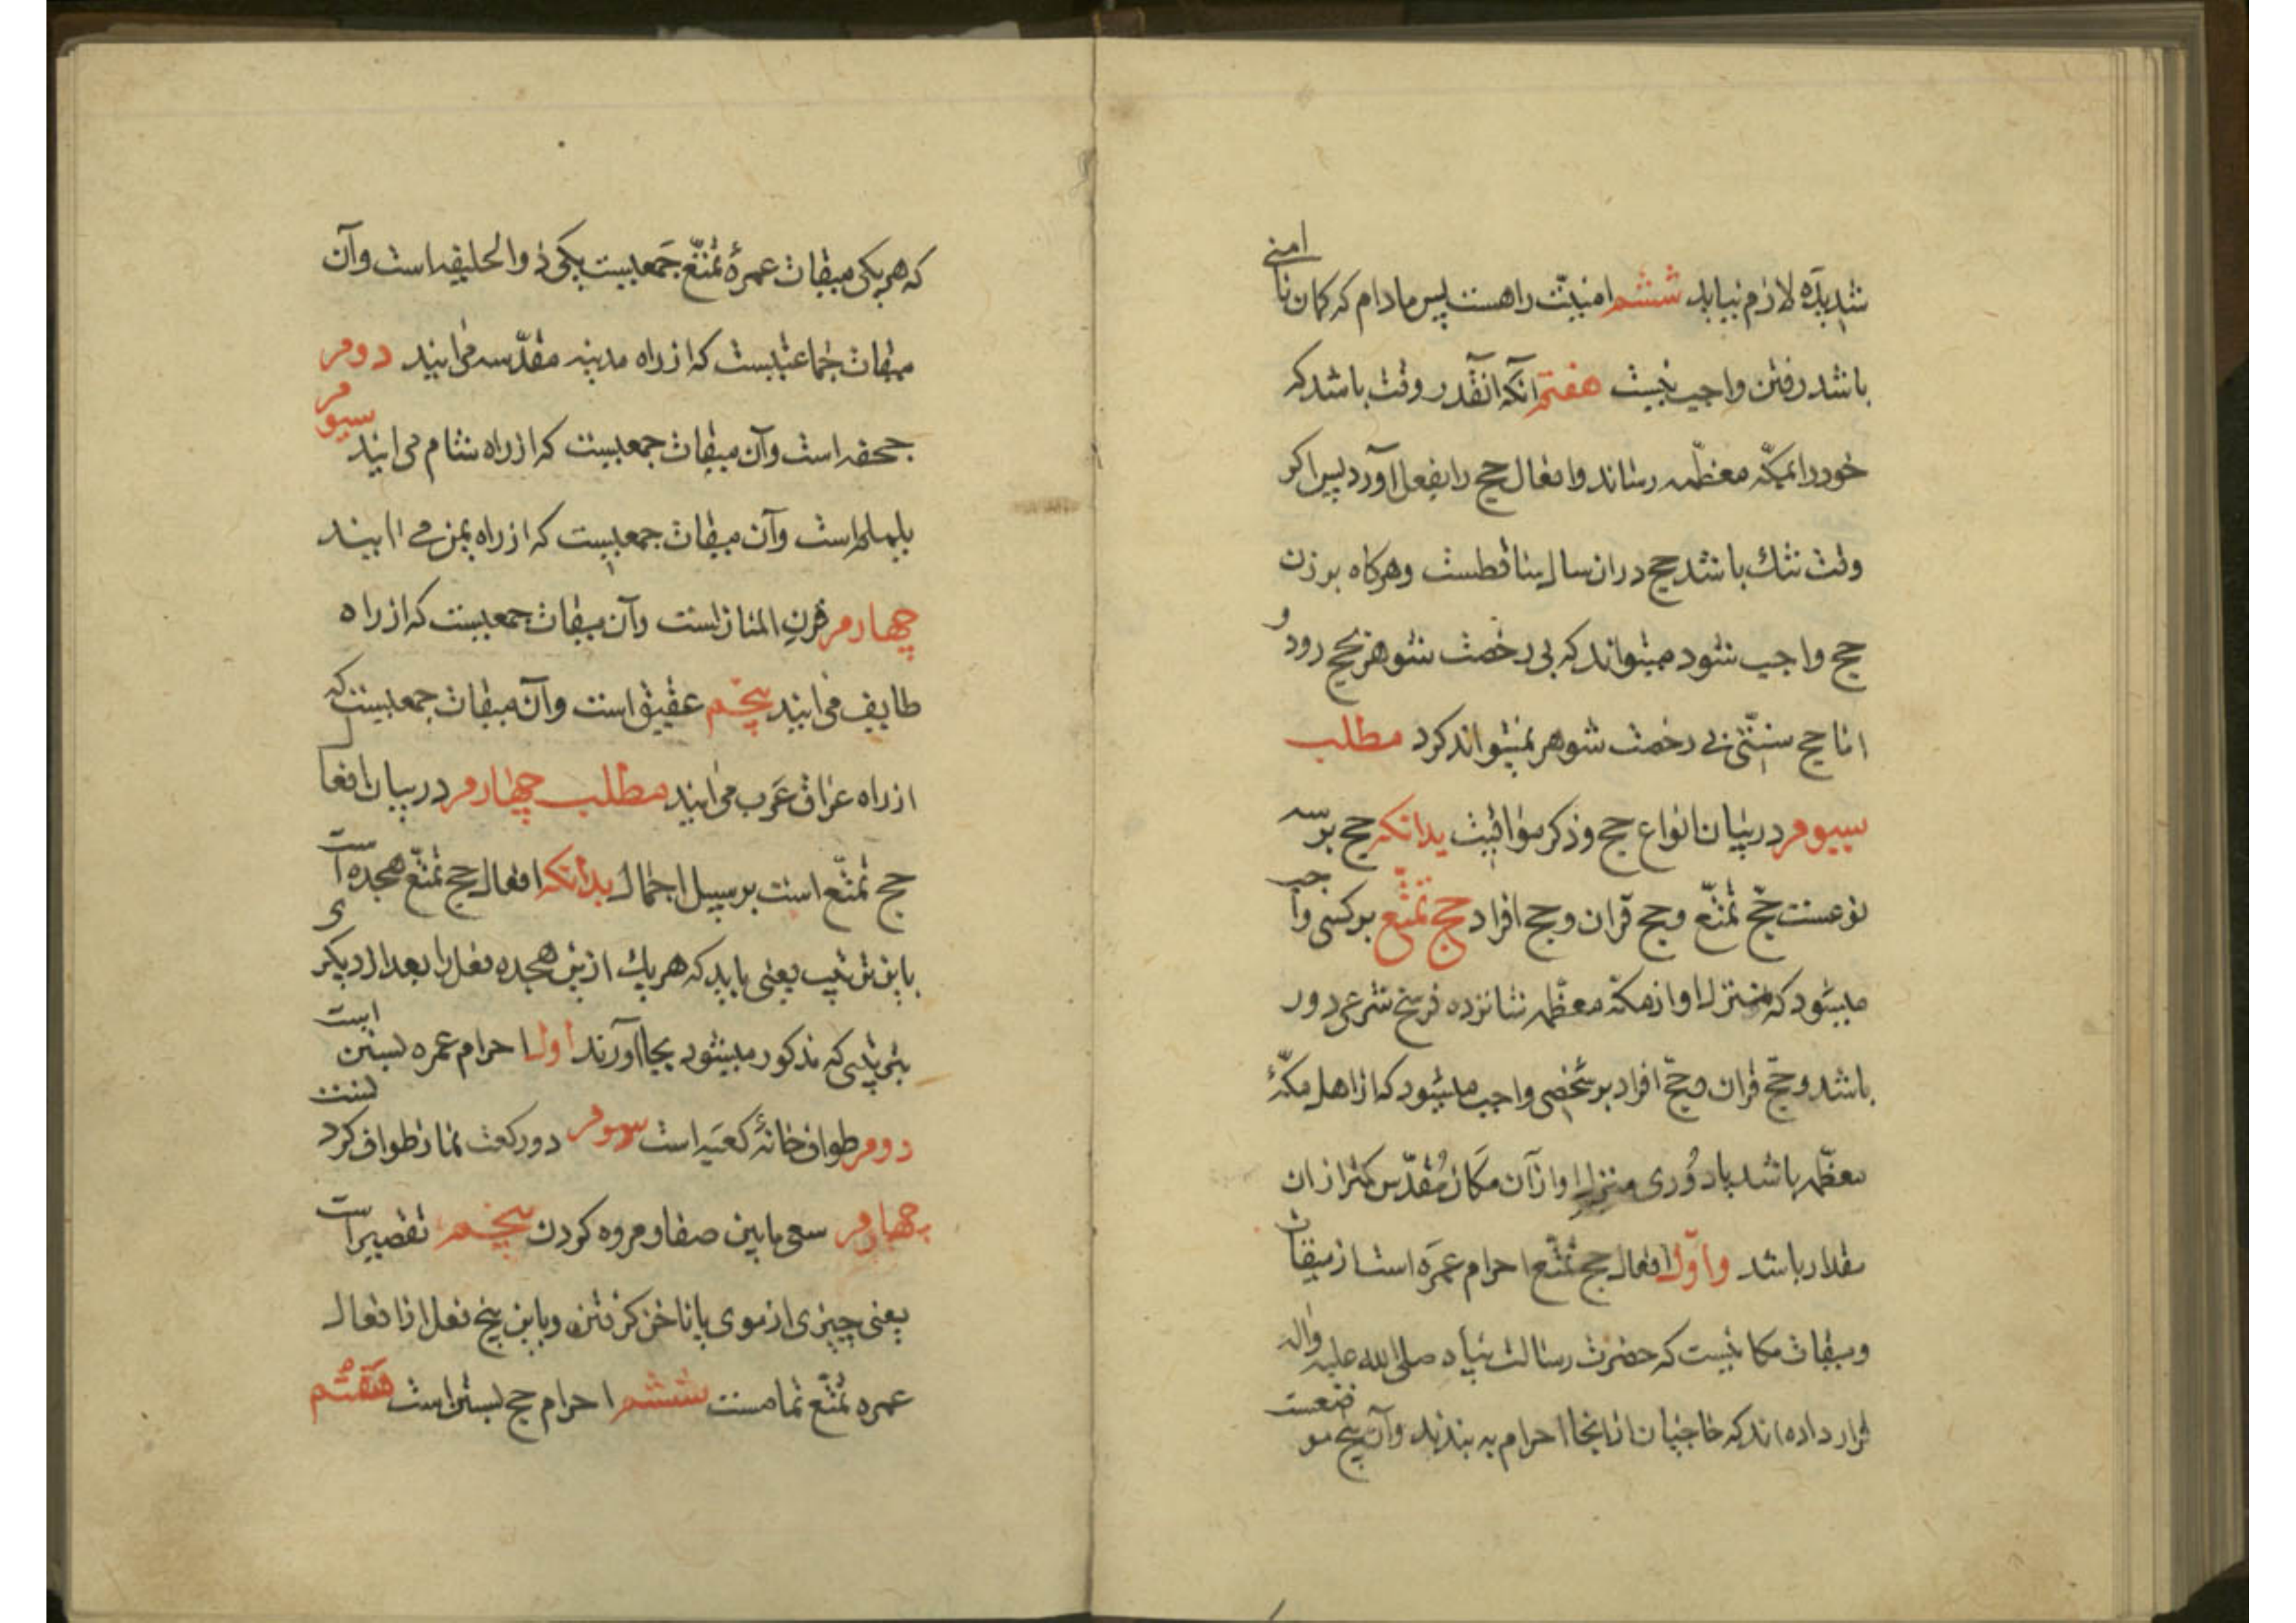 شدیده لازم نیاید ششم امنیّت راهست پس مادام که کمان ناامنی
باشد رفتن واجب نیست هفتم آنکه آنقدر وقت باشد که
خود را بمکّه معظّمه رساند و افعال حج را بفعل آورد پس اکر
وقت تنك باشد حج در ان سال ساقطست و هرکاه بر زن
حج واجب شود میتواند که بی رخصت شوهر بحج رود و
امّا حج سنتی بی رخصت شوهر نمیتواند کرد مطلب
سیوم در بیان انواع حج و ذکر مواقیت بدانکه حج بر سه
نوعست حجّ تمتّع و حج قران و حج افراد حج تمتّع بر کسی واجب
میشود که منزل او از مکّه معظّمه شانزده فرسخ شرعی دور
باشد و حجّ قران و حجّ افراد بر شخصی واجب میشود که از اهل مکّهٔ
معظّمه باشد یا دُوری منزل او از آن مکان مُقدّس کمتر از ان
مقدار باشد و اوّل افعال حج تمتّع احرام عمره است از میقات
و میقات مکانیست که حضرت رسالت پناه صلی الله علیه واله
قرار داده اند که حاجیان از انجا احرام به بندند و آن پنج موضعست
که هر یکی میقات عمرهٔ تمتّع جمعیست یکی ذوالحلیفه است و آن
میقات جماعتیست که از راه مدینه مقدّسه می ایند دوم
جحفه است و آن میقات جمعیست که از راه شام می ایند سیوم
یلملم است و آن میقات جمعیست که از راه یمن می ایند
چهارم قرن المنازلست و آن میقات جمعیست که از راه
طایف می ایند پنجم عقیق است و آن میقات جمعیست که
از راه عراق عرب می ایند مطلب چهارم در بیان افعال
حج تمتّع است بر سبیل اجمال بدانکه افعال حج تمتّع هجده است
باین ترتیب یعنی باید که هر یك ازین هجده فعل را بعد از دیکری
بترتیبی که مذکور میشود بجا آورند اول احرام عمره بستن است
دوم طواف خانهٔ کعبه است سوم دو رکعت نماز طواف کردنست
چهارم سعی مابین صفا و مروه کردن پنجم تقصیر است
یعنی چیزی از موی یا ناخن کرفتن و باین پنج فعل از افعال
عمره تمتّع تمامست ششم احرام حج بستن است هفتم